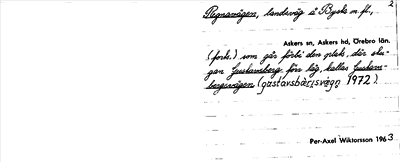 Regnavägen, landsväg i Byske m.fl., 2
Askers sn, Askers hd, Örebro län.
(forts.) som går förbi den plats, där stu-
gan Gustavsberg förr låg, kallas Gustavs-
bergsvägen (gustavsbærjsvägn 1972).
Per-Axel Wiktorsson 1963